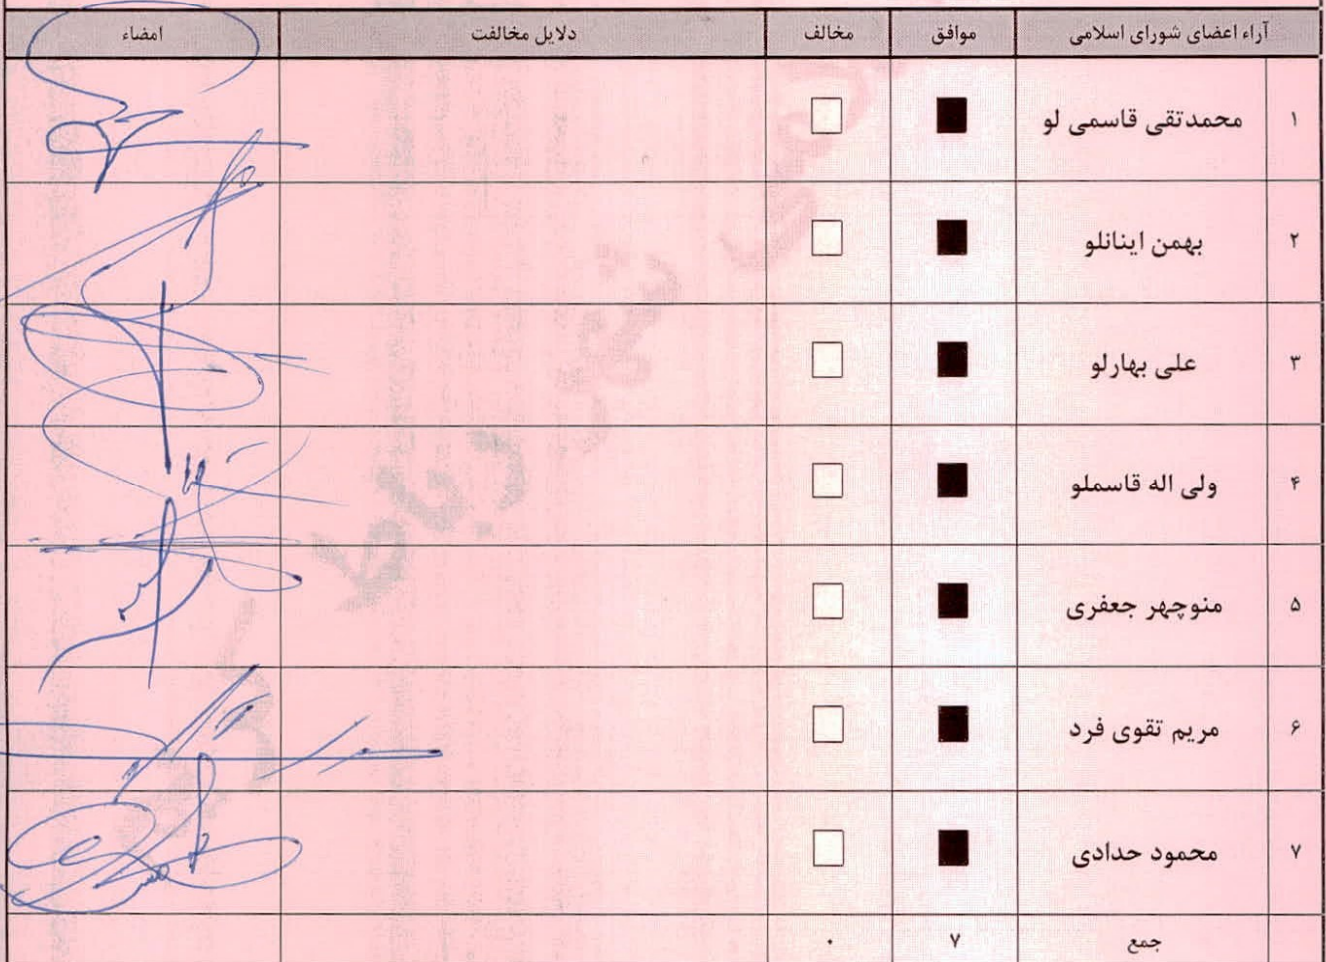 آراء اعضای شورای اسلامی موافق مخالف دلایل مخالفت امضاء
۱ محمدتقی قاسمی لو ■ □
۲ بهمن اینانلو ■ □
۳ علی بهارلو ■ □
۴ ولی اله قاسملو ■ □
۵ منوچهر جعفری ■ □
۶ مریم تقوی فرد ■ □
۷ محمود حدادی ■ □
جمع ۷ ۰